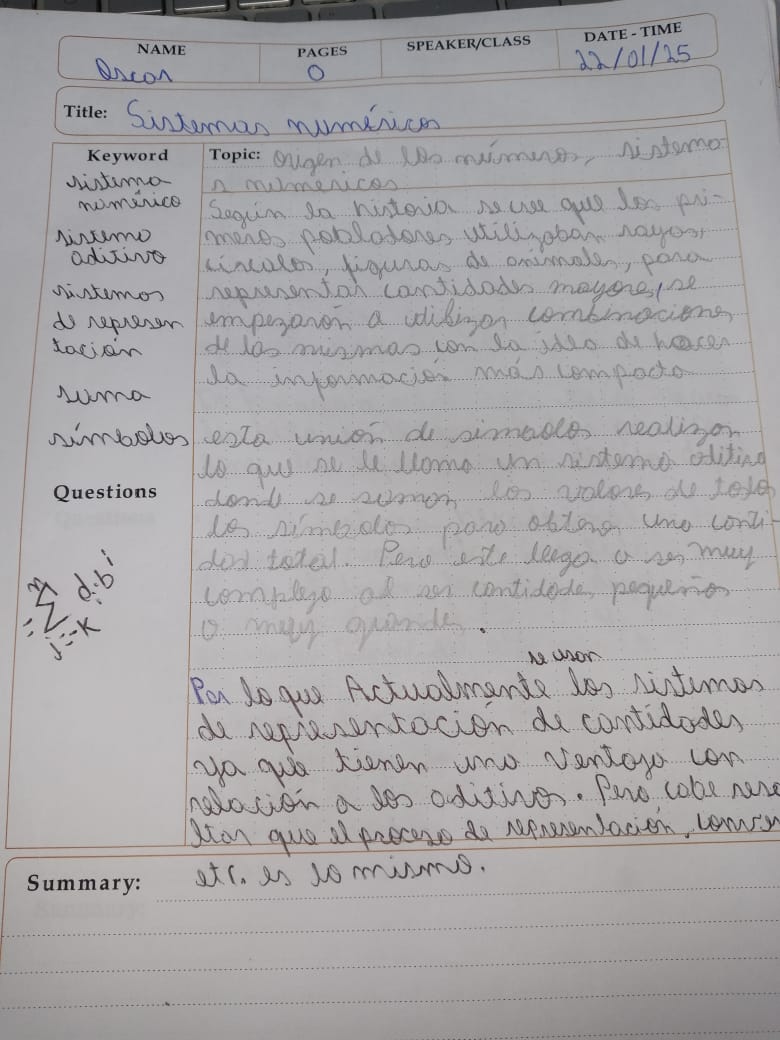 NAME PAGES SPEAKER/CLASS DATE - TIME
Oscar 0 22/01/25
Title: Sistemas numéricos
Keyword
sistema
numérico
sistema
aditivo
sistemas
de represen
tación
suma
símbolos
Questions
n
Σ di bⁱ
i=-k
Topic: Origen de los números, sistema-
s numericos
Según la historia se cree que los pri-
meros pobladores utilizaban rayas,
círculos, figuras de animales, para
representar cantidades mayores, se
empezarón a utilizar combinaciones
de las mismas con la idea de hacer
la información más compacta
esta unión de simbolos realizan
lo que se le llama un sistema aditivo
donde se suman los valores de todos
los símbolos para obtener una canti-
dad total. Pero este llega a ser muy
complejo al ser cantidades pequeñas
o muy grandes.
se usan
Por lo que Actualmente los sistemas
de representación de cantidades
ya que tienen una ventaja con
relación a los aditivos. Pero cabe resa
ltar que el proceso de representación,
etc. es lo mismo.
Summary: